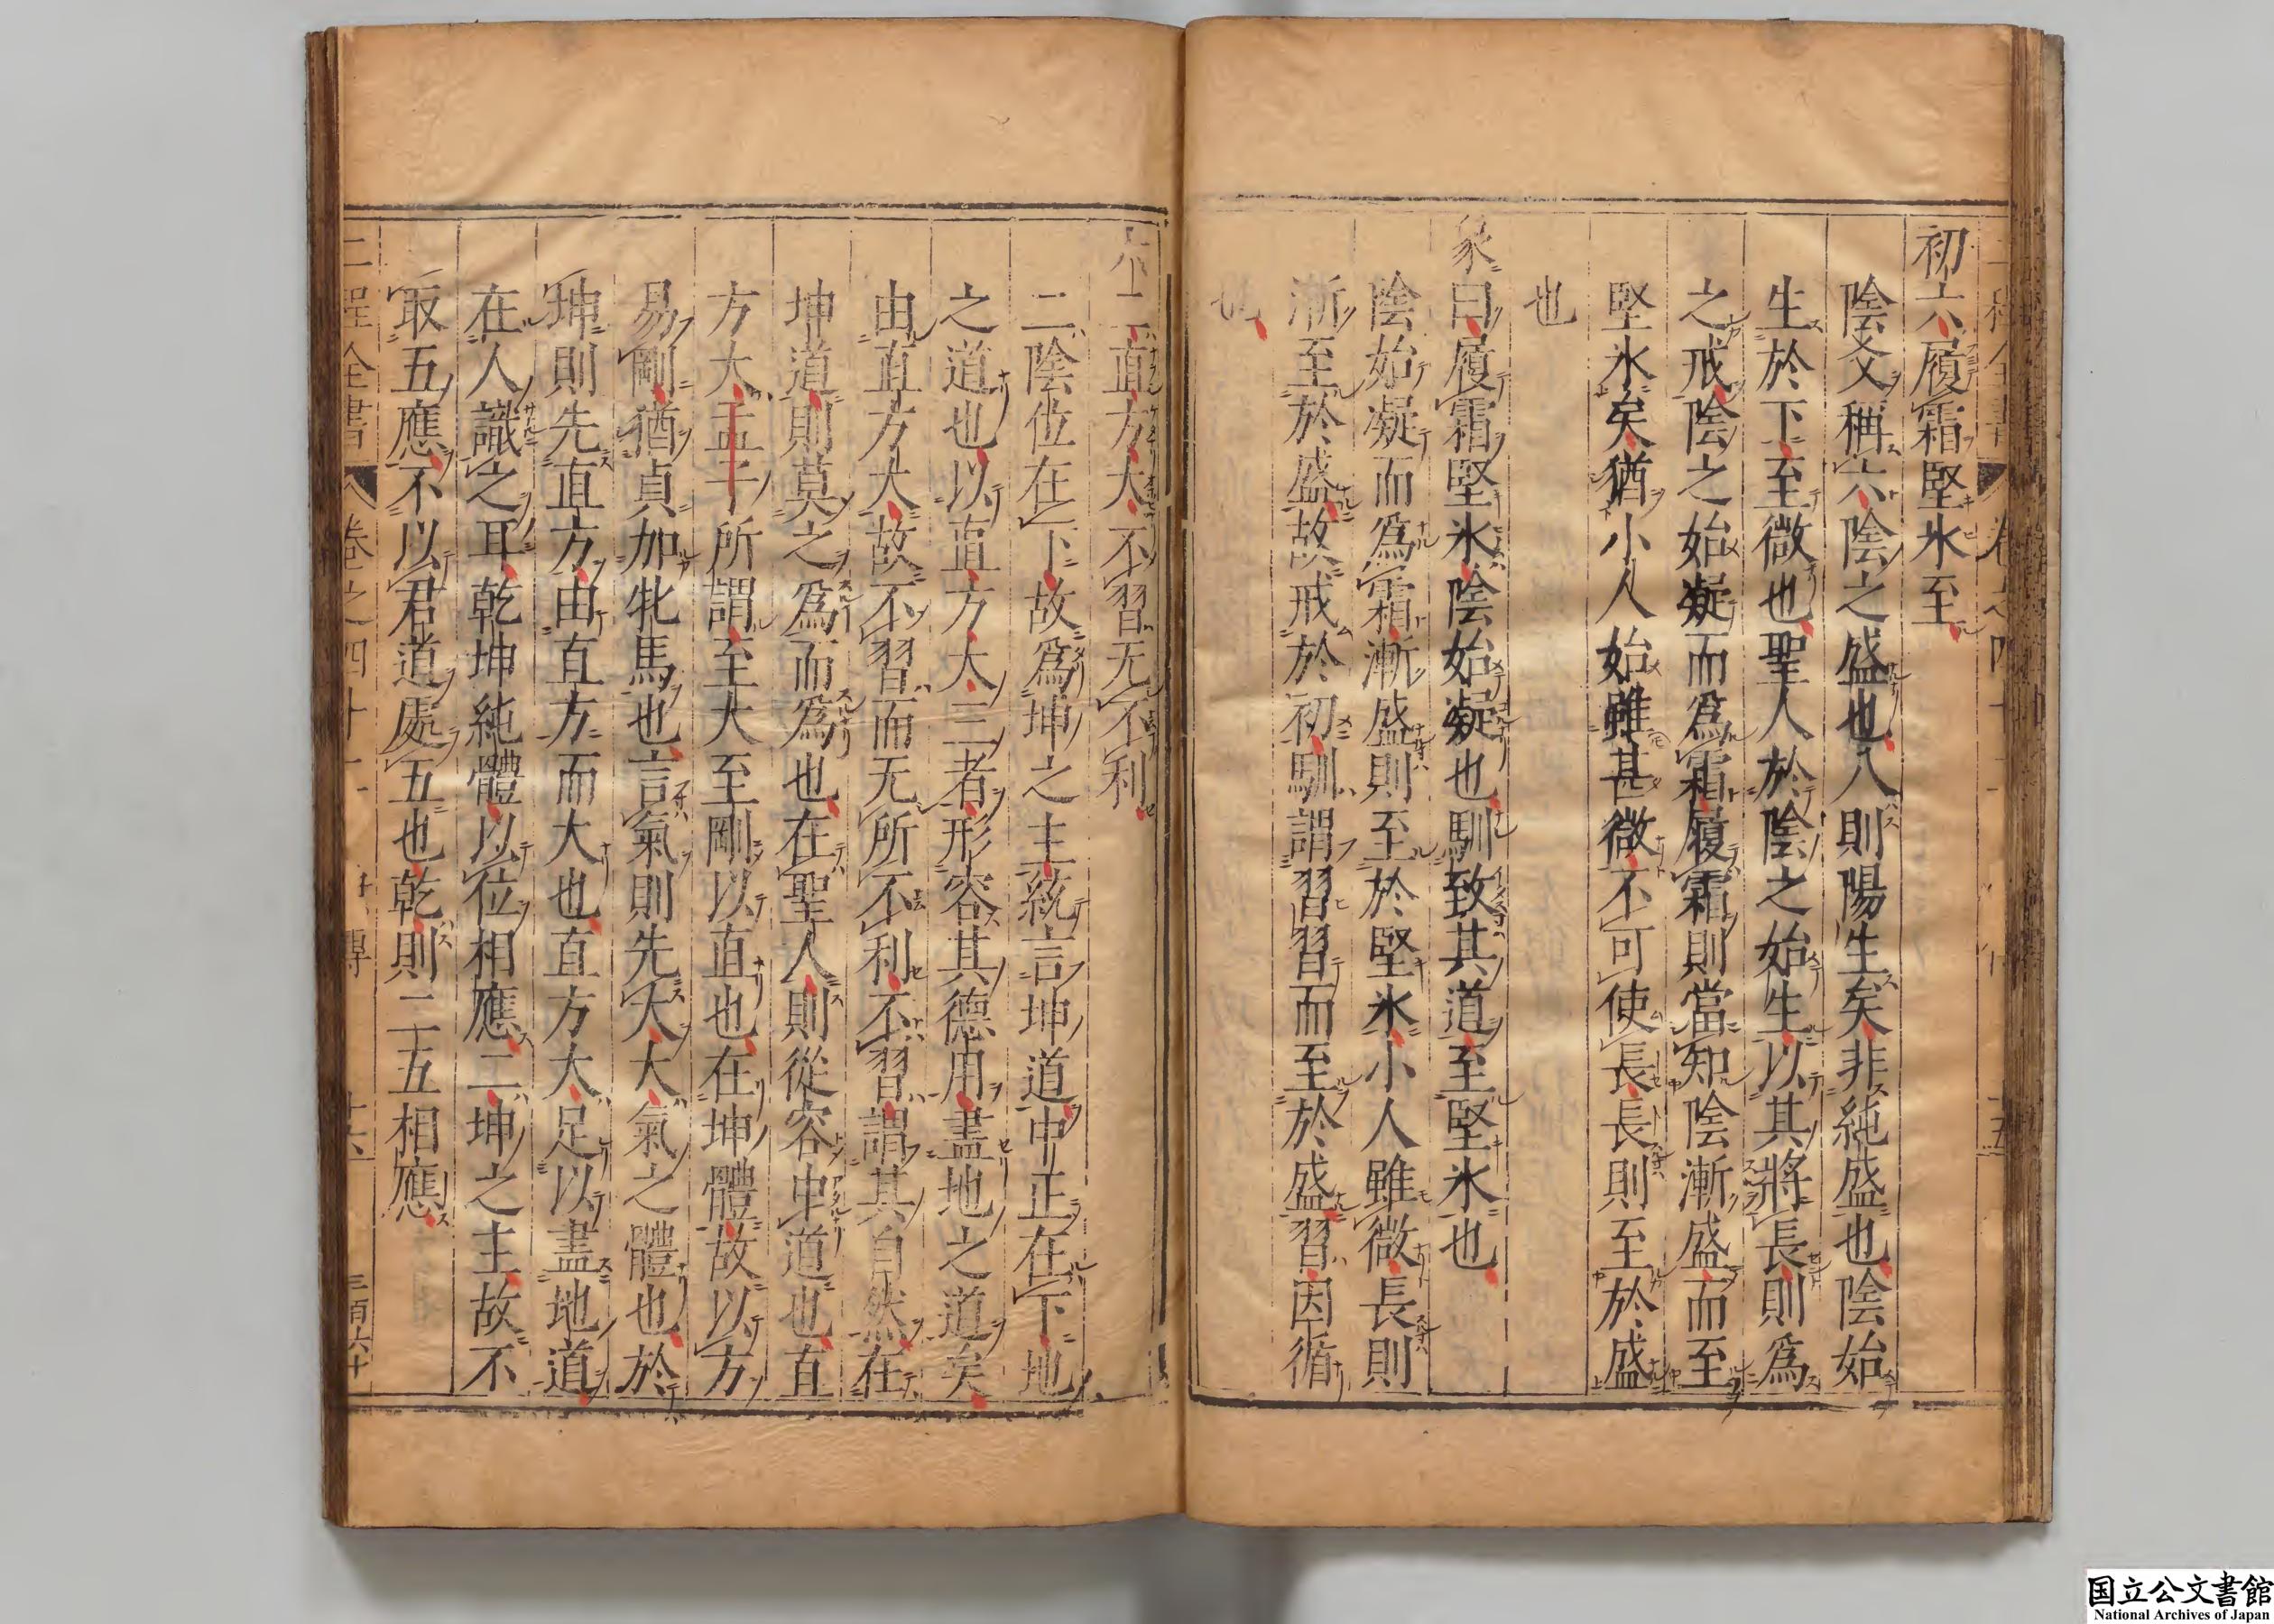 初六履霜堅氷至
陰爻稱六陰之盛也八則陽生矣非純盛也陰始
生於下至微也聖人於陰之始生以其將長則爲
之戒陰之始凝而爲霜履霜則當知陰漸盛而至
堅氷矣猶小人始雖甚微不可使長長則至於盛
也
象曰履霜堅氷陰始凝也馴致其道至堅氷也
陰始凝而爲霜漸盛則至於堅氷小人雖微長則
漸至於盛故戒於初馴謂習習而至於盛習因循
也
六二直方大不習无不利
二陰位在下故爲坤之主統言坤道中正在下地
之道也以直方大三者形容其德用盡地之道矣
由直方大故不習而无所不利不習謂其自然在
坤道則莫之爲而爲也在聖人則從容中道也直
方大孟子所謂至大至剛以直也在坤體故以方
易剛猶貞加牝馬也言氣則先大大氣之體也於
坤則先直方由直方而大也直方大足以盡地道
在人識之耳乾坤純體以位相應二坤之主故不
取五應不以君道處五也乾則二五相應
二程全書
卷之四十一
傳
十六
三百六十
国立公文書館
National Archives of Japan